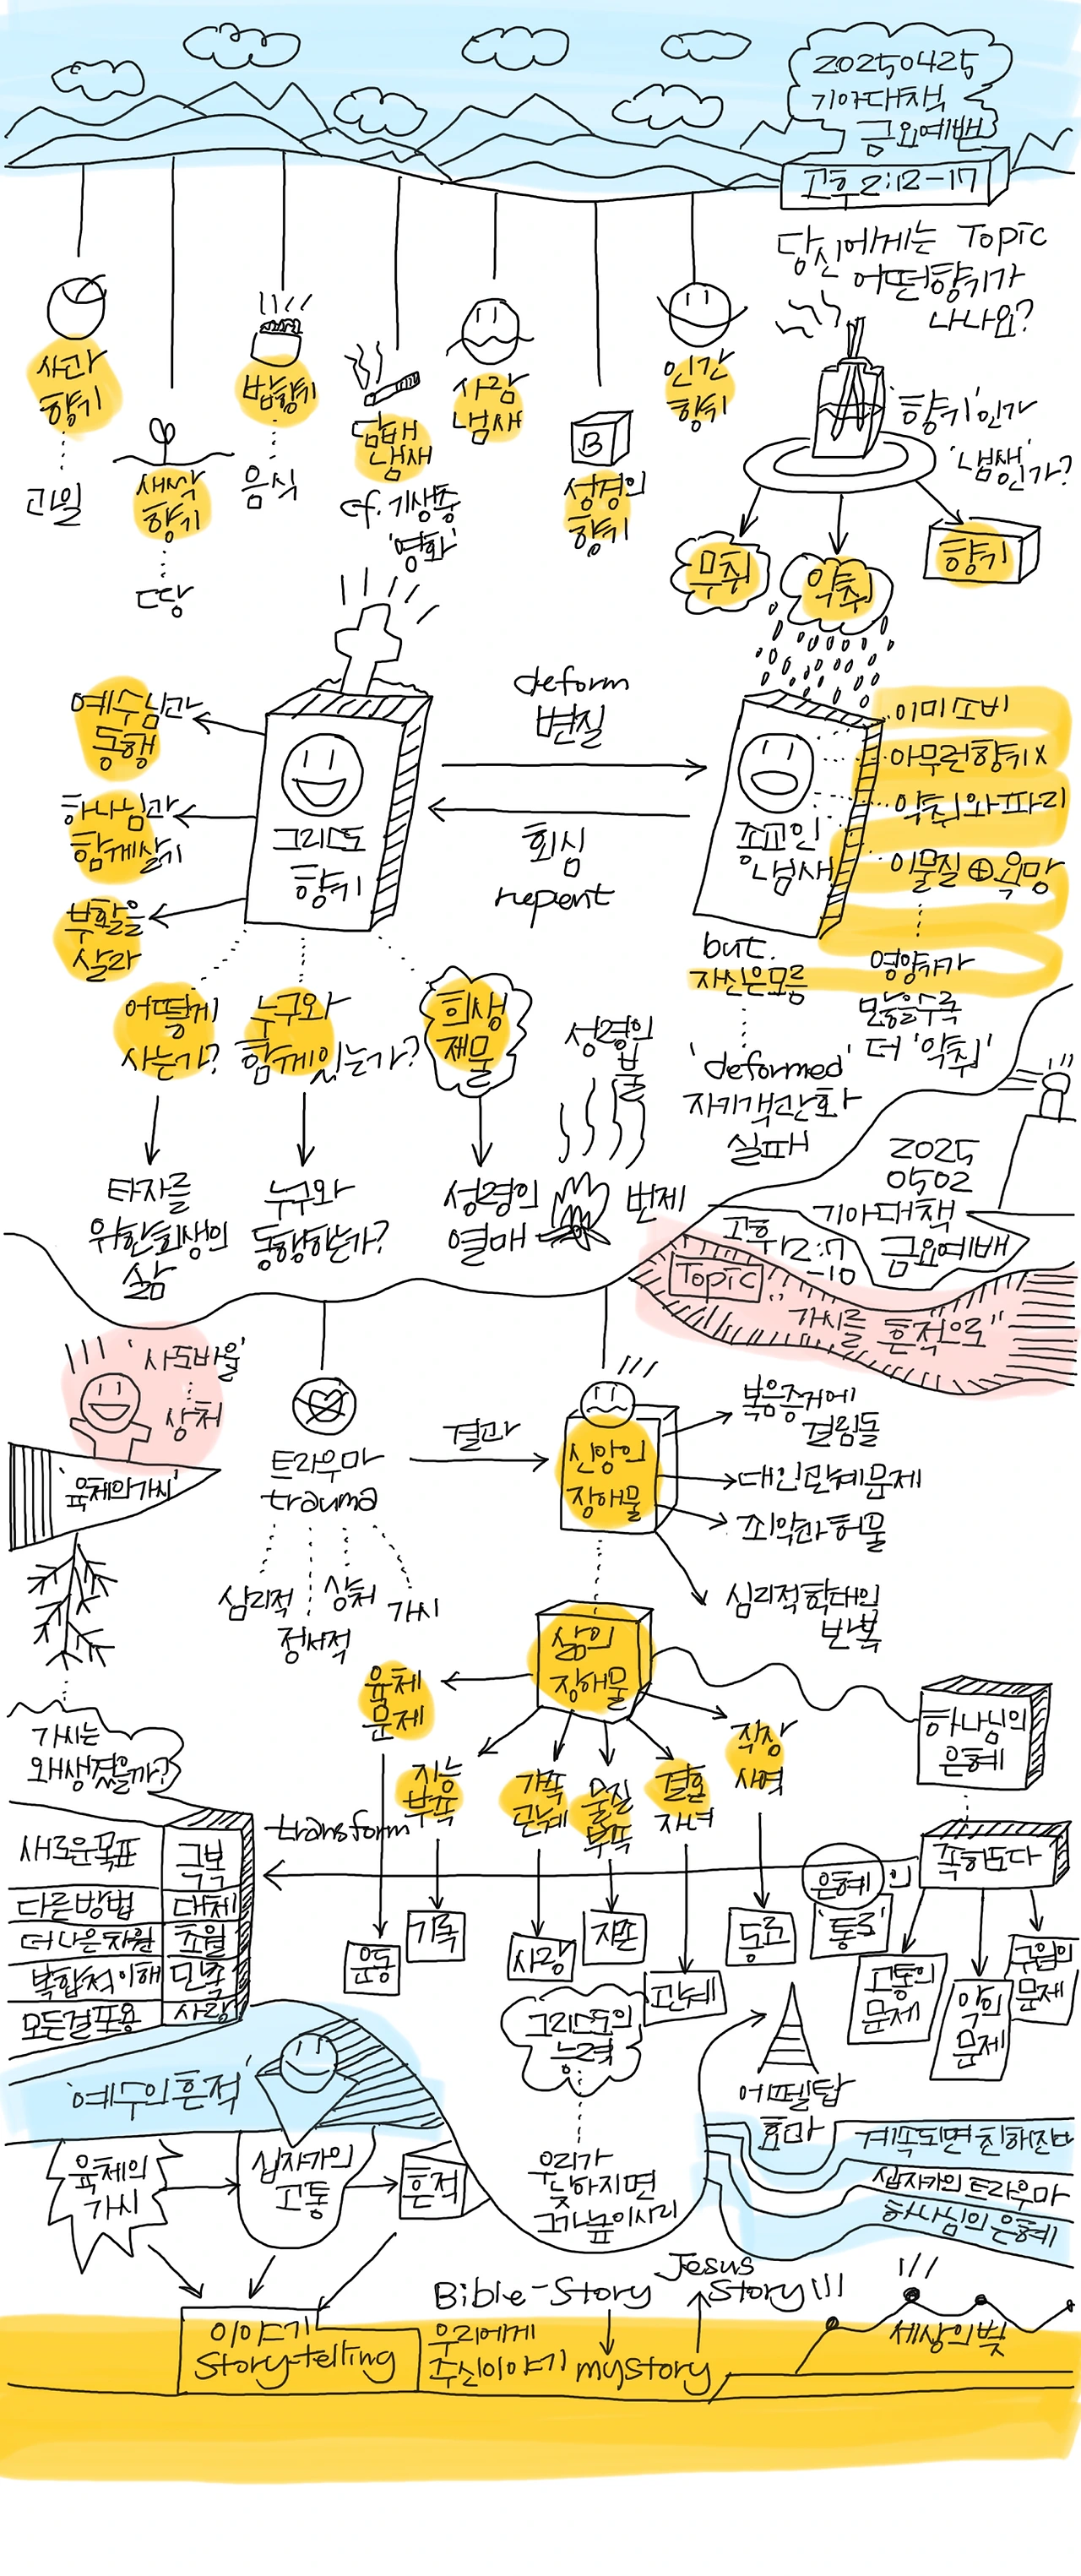 20250425
기아대책
금요예배
고후 2:12-17
당신에게는 Topic
어떤향기가
나나요?
사과
향기
과일
새싹
향기
땅
밥향기
음식
담배
냄새
cf. 기생충
'영화'
사람
냄새
B
성경의
향기
인간
향기
'향기'인가
'냄새'인가?
무취
악취
향기
예수님과
동행
하나님과
함께살기
부활을
살라
그리스도
향기
deform
변질
회심
repent
종교인
냄새
이미소비
아무런향기 x
악취와파리
이물질 ⊕ 욕망
but.
자신은모름
영양가가
많을수록
더 '악취'
'deformed'
자기객관화
실패
어떻게
사는가?
누구와
함께있는가?
희생
제물
성령의
불
타자를
위한희생의
삶
누구와
동행하는가?
성령의
열매
번제
2025
0502
기아대책
금요예배
고후
12:7
-10
Topic
"가시를 흔적으로"
'사도바울'
상처
'육체의가시'
트라우마
trauma
심리적
정서적
상처
가시
결과
신앙의
장해물
복음증거에
걸림돌
대인관계문제
죄악과허물
심리적학대의
반복
삶의
장해물
육체
문제
지능
부족
가족
관계
물질
부족
결혼
자녀
직장
사역
하나님의
은혜
가시는
왜생겼을까?
transform
족하도다
새로운목표 극복
다른방법 대체
더나은차원 초월
복합적이해 단축
모든걸포용 사랑
운동
기록
사랑
자존
관계
동료
은혜 인
'통로'
고통의
문제
악의
문제
구원의
문제
그리스도의
능력
우리가
낮아지면
그가높이시리
에펠탑
효과
계속되면 친해진다
십자가의 트라우마
하나님의 은혜
'예수의흔적'
육체의
가시
십자가의
고통
흔적
이야기
Story-telling
Bible-Story
Jesus
Story!!!
우리에게
주신이야기 mystory
세상의빛